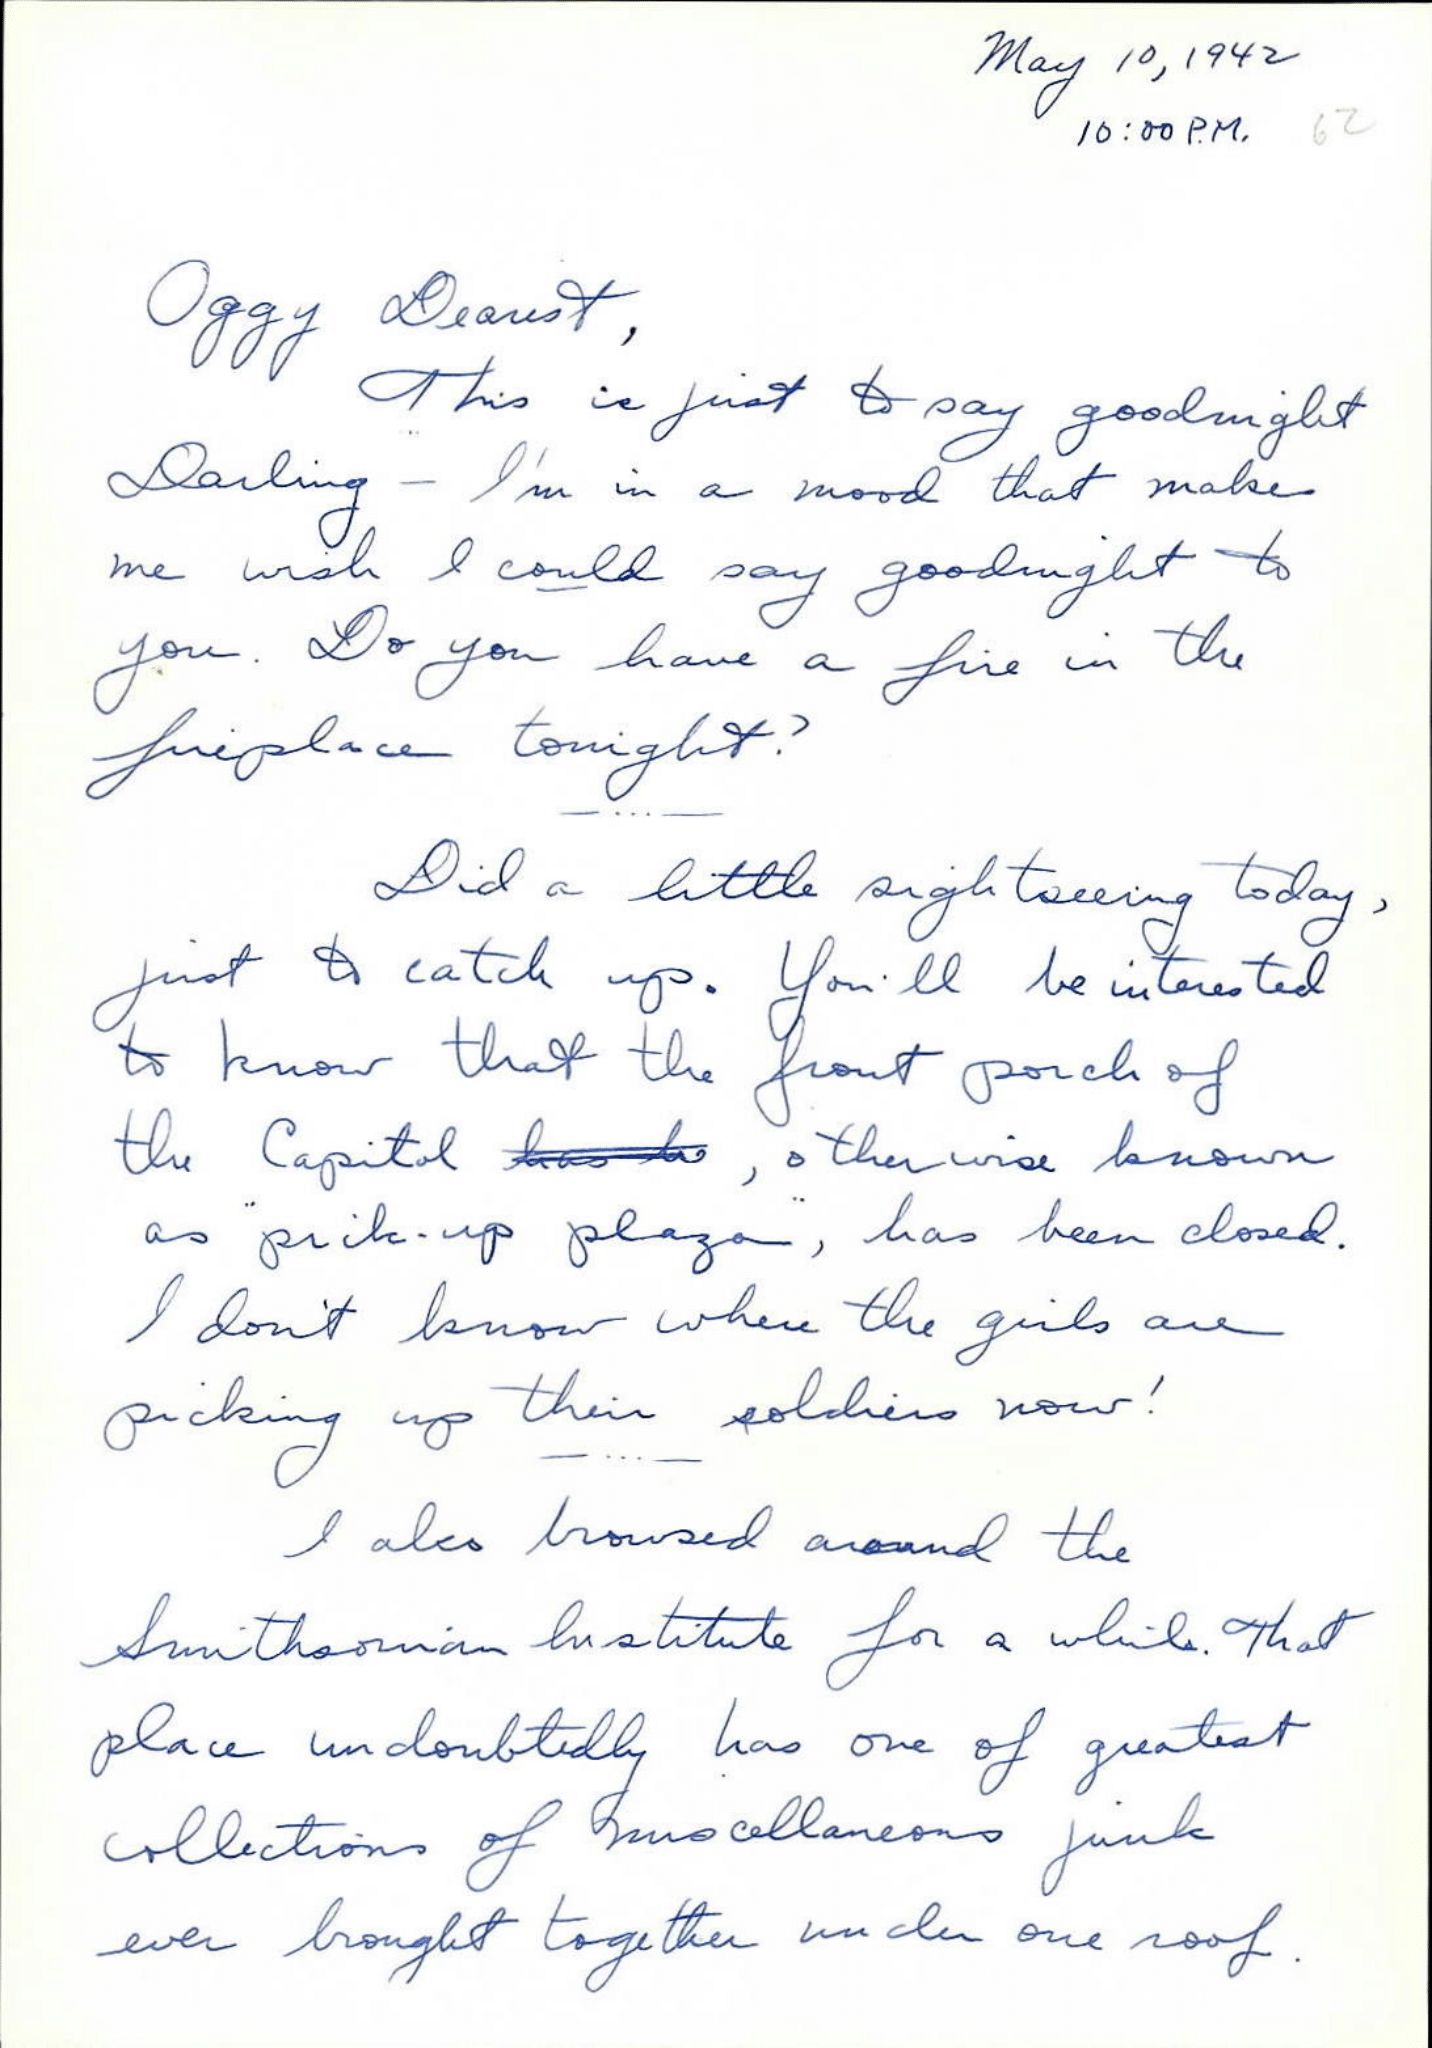 May 10, 1942
10:00 P.M.
62
Oggy Dearest,
This is just to say goodnight
Darling — I'm in a mood that makes
me wish I could say goodnight to
you. Do you have a fire in the
fireplace tonight?
— ... —
Did a little sightseeing today,
just to catch up. You'll be interested
to know that the front porch of
the Capitol has be, otherwise known
as "pick-up plaza", has been closed.
I don't know where the girls are
picking up their soldiers now!
— ... —
I also browsed around the
Smithsonian Institute for a while. That
place undoubtedly has one of greatest
collections of miscellaneous junk
ever brought together under one roof.